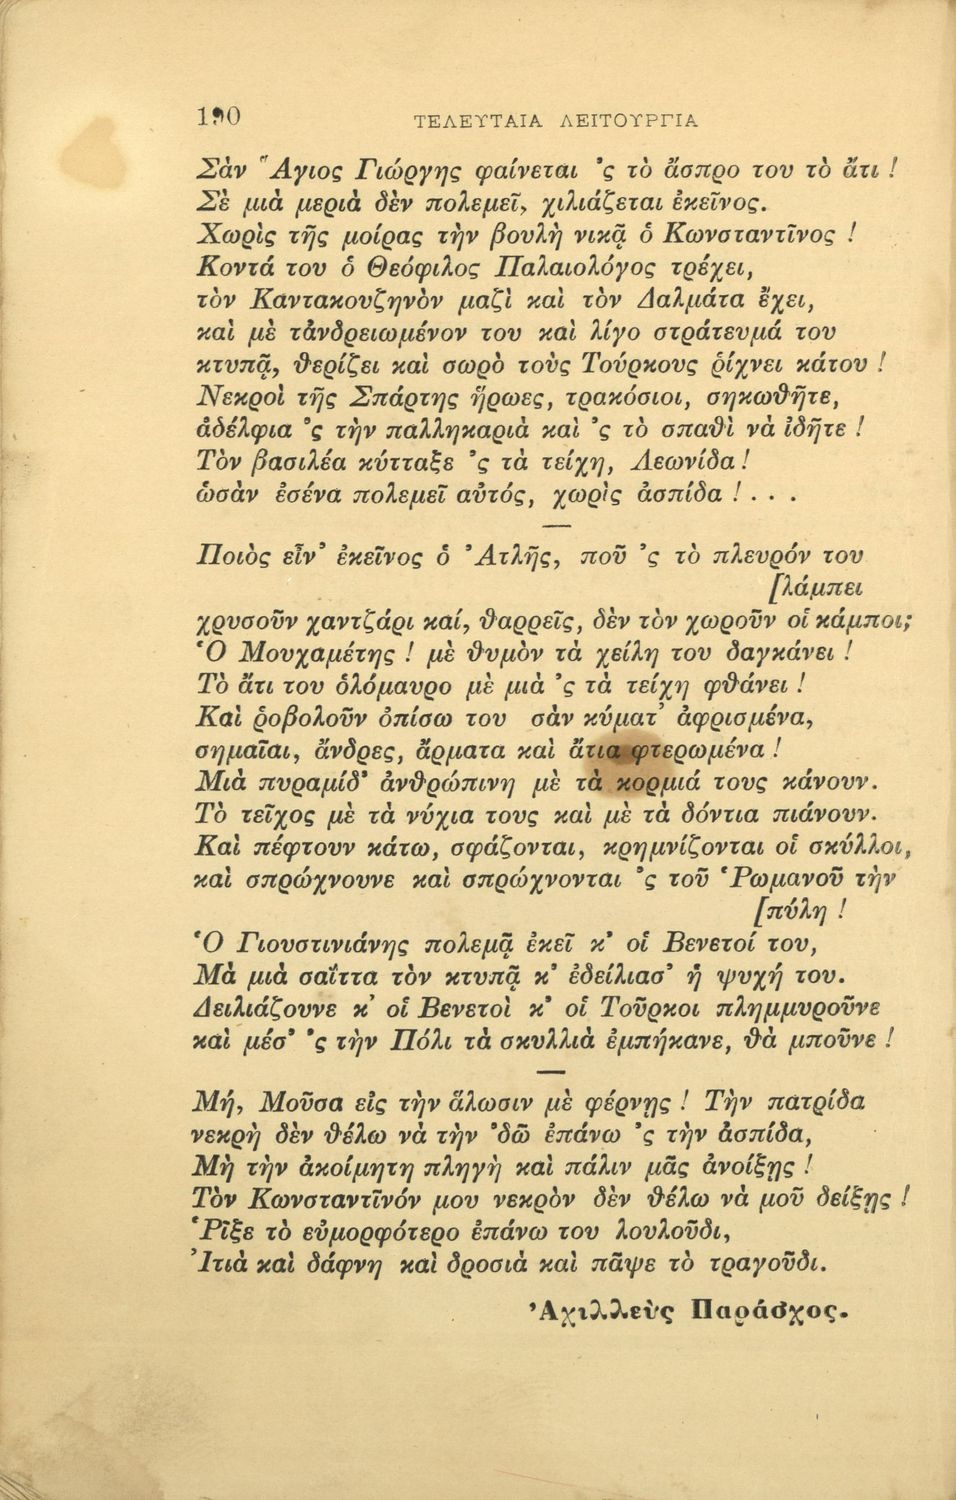 190 ΤΕΛΕΥΤΑΙΑ ΛΕΙΤΟΥΡΓΙΑ
Σὰν Ἅγιος Γιώργης φαίνεται 'ς τὸ ἄσπρο του τὸ ἄτι !
Σὲ μιὰ μεριὰ δὲν πολεμεῖ, χιλιάζεται ἐκεῖνος.
Χωρὶς τῆς μοίρας τὴν βουλὴ νικᾷ ὁ Κωνσταντῖνος !
Κοντά του ὁ Θεόφιλος Παλαιολόγος τρέχει,
τὸν Καντακουζηνὸν μαζὶ καὶ τὸν Δαλμάτα ἔχει,
καὶ μὲ τἀνδρειωμένον του καὶ λίγο στράτευμά του
κτυπᾷ, θερίζει καὶ σωρὸ τοὺς Τούρκους ῥίχνει κάτου !
Νεκροὶ τῆς Σπάρτης ἥρωες, τρακόσιοι, σηκωθῆτε,
ἀδέλφια 'ς τὴν παλληκαριὰ καὶ 'ς τὸ σπαθὶ νὰ ἰδῆτε !
Τὸν βασιλέα κύτταξε 'ς τὰ τείχη, Λεωνίδα !
ὡσὰν ἐσένα πολεμεῖ αὐτός, χωρὶς ἀσπίδα ! . . .
Ποιὸς εἶν' ἐκεῖνος ὁ Ἀτλῆς, ποῦ 'ς τὸ πλευρόν του
[λάμπει
χρυσοῦν χαντζάρι καί, θαρρεῖς, δὲν τὸν χωροῦν οἱ κάμποι;
Ὁ Μουχαμέτης ! μὲ θυμὸν τὰ χείλη του δαγκάνει !
Τὸ ἄτι του ὁλόμαυρο μὲ μιὰ 'ς τὰ τείχη φθάνει !
Καὶ ῥοβολοῦν ὀπίσω του σὰν κύματ' ἀφρισμένα,
σημαῖαι, ἄνδρες, ἄρματα καὶ ἄτια φτερωμένα !
Μιὰ πυραμίδ' ἀνθρώπινη μὲ τὰ κορμιά τους κάνουν.
Τὸ τεῖχος μὲ τὰ νύχια τους καὶ μὲ τὰ δόντια πιάνουν.
Καὶ πέφτουν κάτω, σφάζονται, κρημνίζονται οἱ σκύλλοι,
καὶ σπρώχνουνε καὶ σπρώχνονται 'ς τοῦ Ῥωμανοῦ τὴν
[πύλη !
Ὁ Γιουστινιάνης πολεμᾷ ἐκεῖ κ' οἱ Βενετοί του,
Μὰ μιὰ σαΐττα τὸν κτυπᾷ κ' ἐδείλιασ' ἡ ψυχή του.
Δειλιάζουνε κ' οἱ Βενετοὶ κ' οἱ Τοῦρκοι πλημμυροῦνε
καὶ μέσ' 'ς τὴν Πόλι τὰ σκυλλιὰ ἐμπήκανε, θὰ μποῦνε !
Μή, Μοῦσα εἰς τὴν ἅλωσιν μὲ φέρνῃς ! Τὴν πατρίδα
νεκρὴ δὲν θέλω νὰ τὴν 'δῶ ἐπάνω 'ς τὴν ἀσπίδα,
Μὴ τὴν ἀκοίμητη πληγὴ καὶ πάλιν μᾶς ἀνοίξῃς !
Τὸν Κωνσταντῖνόν μου νεκρὸν δὲν θέλω νὰ μοῦ δείξῃς !
Ῥῖξε τὸ εὐμορφότερο ἐπάνω του λουλοῦδι,
Ἰτιὰ καὶ δάφνη καὶ δροσιὰ καὶ πᾶψε τὸ τραγοῦδι.
Ἀχιλλεὺς Παράσχος.